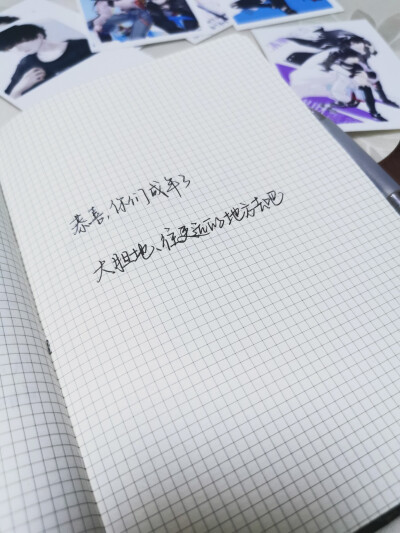 恭喜,你们成年了
大胆地、往更远的地方去吧